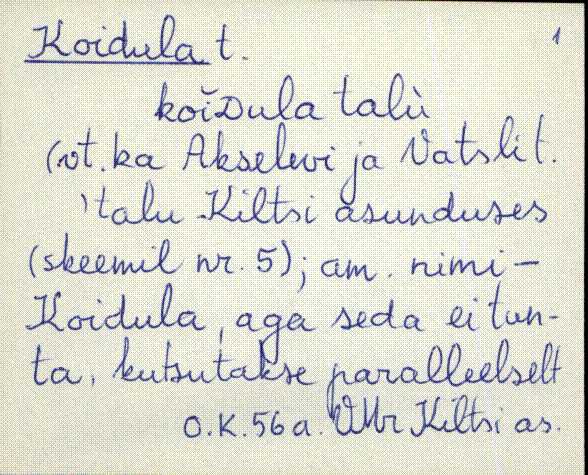 Koidula t. 1
koĭDula talù
(vt. ka Akselevi ja Vatsli t.
'talu Kiltsi asunduses
(skeemil nr. 5); am. nimi –
Koidula, aga seda ei tun-
ta, kutsutakse paralleelselt
O.K. 56 a. VMr Kiltsi as.